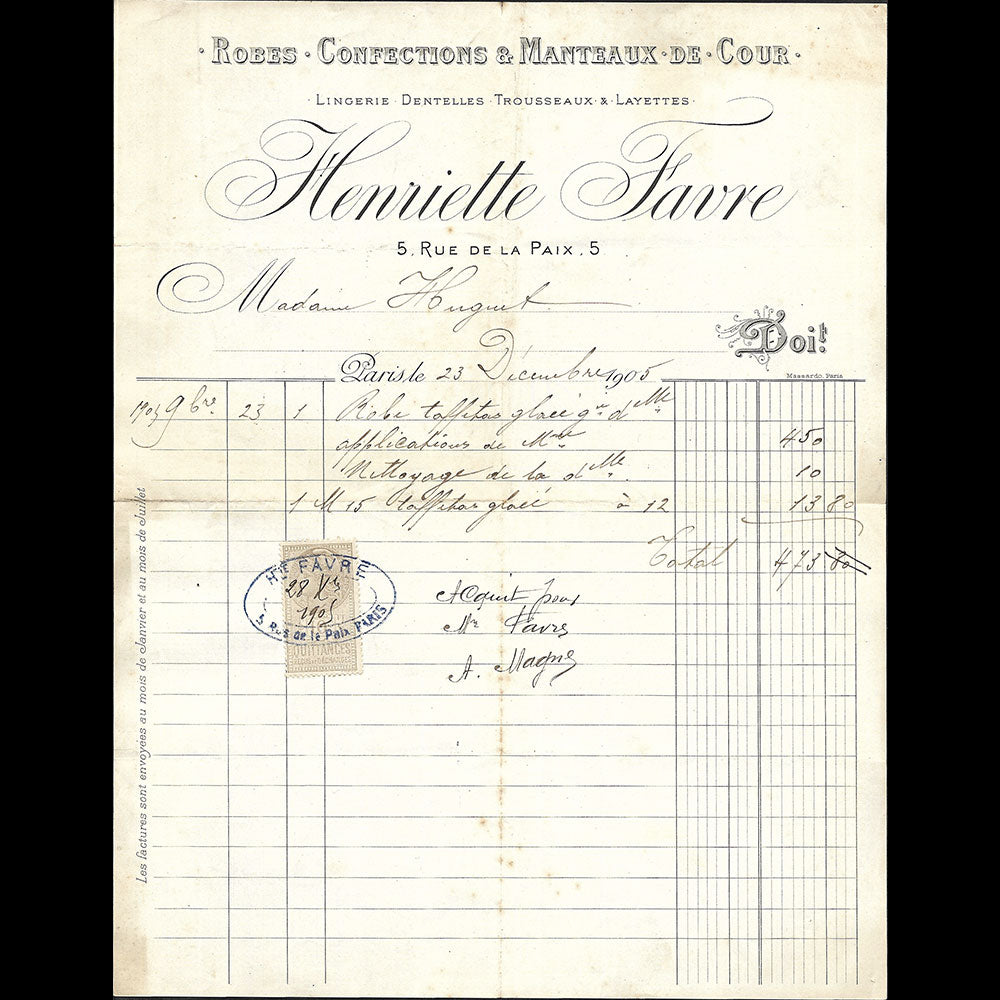 · ROBES · CONFECTIONS & MANTEAUX · DE · COUR ·
· LINGERIE · DENTELLES · TROUSSEAUX · & · LAYETTES ·
Henriette Favre
5, RUE DE LA PAIX, 5
Madame Huguet
Doit:
Massardo, Paris
Paris, le 23 Décembre 1905
1905 9bre 23 1 Robe taffetas glacé gde Mlle
applications de 450
Nettoyage de la dlle 10
1 M 15 taffetas glacé à 12 13 80
Total 473 80
HTE FAVRE
28 Xbre
1905
5 Rue de la Paix PARIS
QUITTANCES
REÇUS ET DÉCHARGES
Acquit pour
Mme Favre
A. Magne
Les factures sont envoyées au mois de Janvier et au mois de Juillet